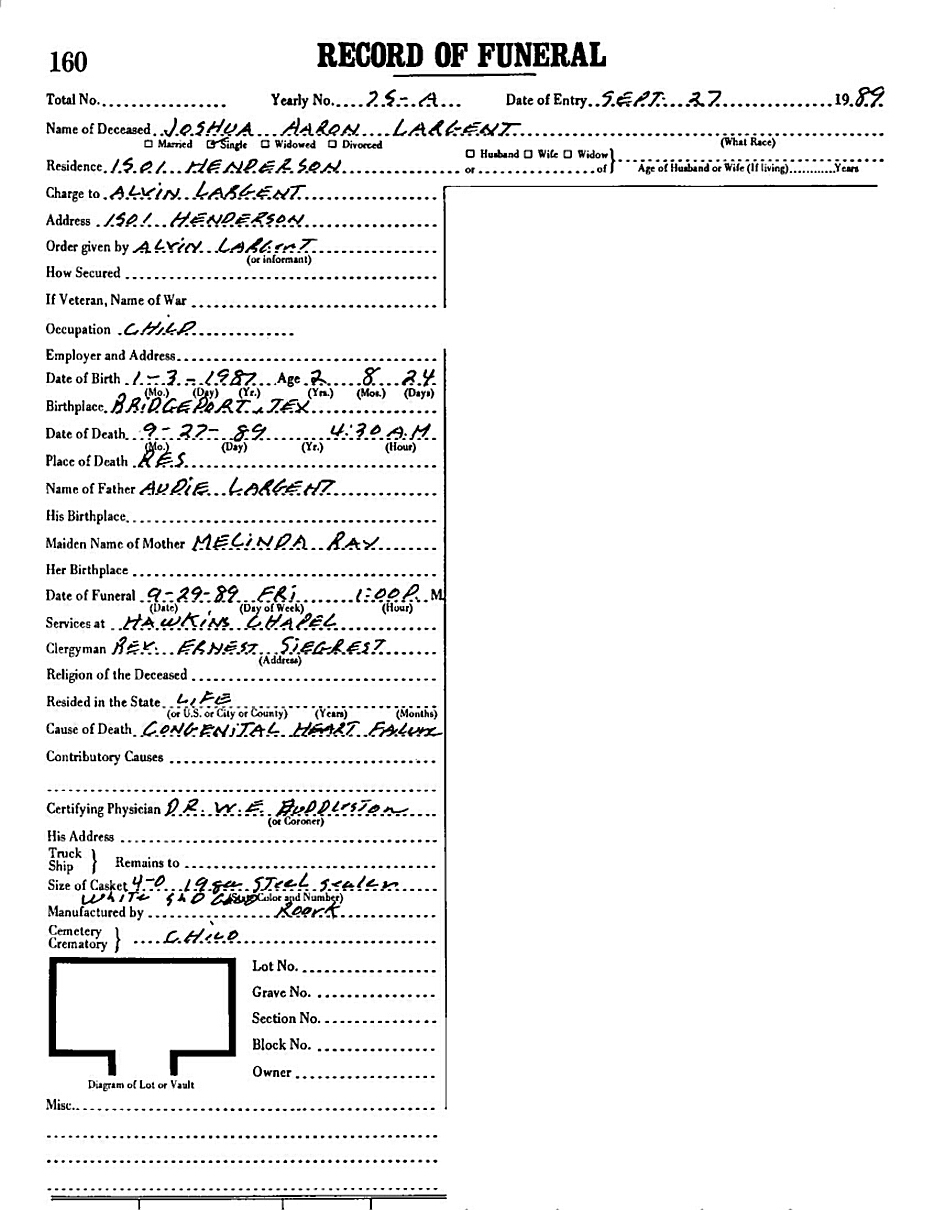 160 RECORD OF FUNERAL
Total No. Yearly No. 25-A Date of Entry SEPT. 27 1989
Name of Deceased JOSHUA AARON LARGENT
☐ Married ☑ Single ☐ Widowed ☐ Divorced (What Race)
Residence 1501 HENDERSON or ☐ Husband ☐ Wife ☐ Widow of Age of Husband or Wife (If living) Years
Charge to ALVIN LARGENT
Address 1501 HENDERSON
Order given by ALVIN LARGENT
(or informant)
How Secured
If Veteran, Name of War
Occupation CHILD
Employer and Address
Date of Birth 1-3-1987 Age 2 8 24
(Mo.) (Day) (Yr.) (Yrs.) (Mos.) (Days)
Birthplace BRIDGEPORT, TEX
Date of Death 9-27-89 4:30 A.M
(Mo.) (Day) (Yr.) (Hour)
Place of Death RES
Name of Father AUDIE LARGENT
His Birthplace
Maiden Name of Mother MELINDA RAY
Her Birthplace
Date of Funeral 9-29-89 FRI 1:00 P. M
(Date) (Day of Week) (Hour)
Services at HAWKINS CHAPEL
Clergyman REV. ERNEST SIEGREST
(Address)
Religion of the Deceased
Resided in the State LIFE
(or U.S. or City or County) (Years) (Months)
Cause of Death CONGENITAL HEART FAILURE
Contributory Causes
Certifying Physician DR. W.E. HUDDLESTON
(or Coroner)
His Address
Truck
Ship } Remains to
Size of Casket 4-0 19 ga STEEL SEALER
WHITE (State Color and Number)
Manufactured by
Cemetery
Crematory } CHILD
Lot No.
Grave No.
Section No.
Block No.
Owner
Diagram of Lot or Vault
Misc.